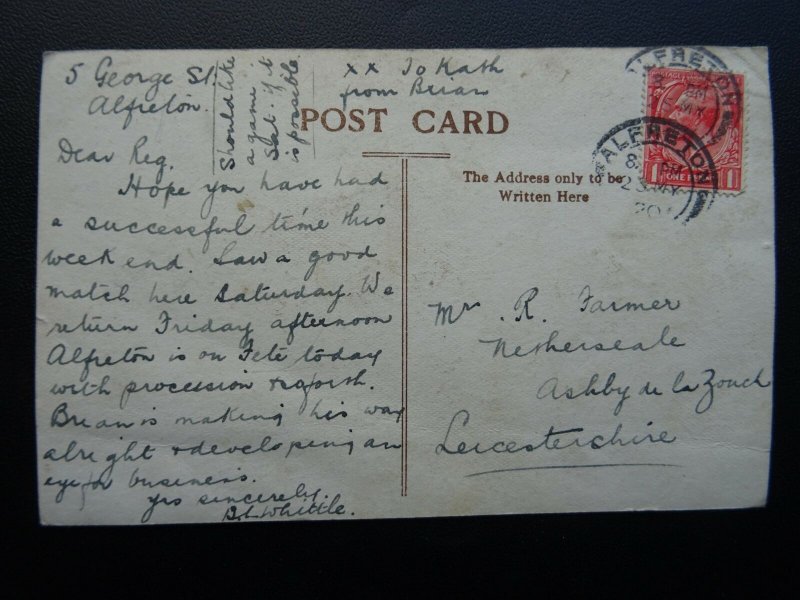 5 George St.
Alfreton.
Should like
a game
Sat. if it
is possible
xx To Kath
from Brian
POST CARD
Dear Reg,
Hope you have had
a successful time this
week end. Saw a good
match here Saturday. We
return Friday afternoon
Alfreton is on Fete today
with procession
Brian is making his way
alright + developing an
eye for business.
yrs sincerely.
Whittle.
The Address only to be
Written Here
Mr. R. Farmer
Netherseale
Ashby de la Zouch
Leicestershire
ALFRETON
ALFRETON
ONE PENNY
1
1